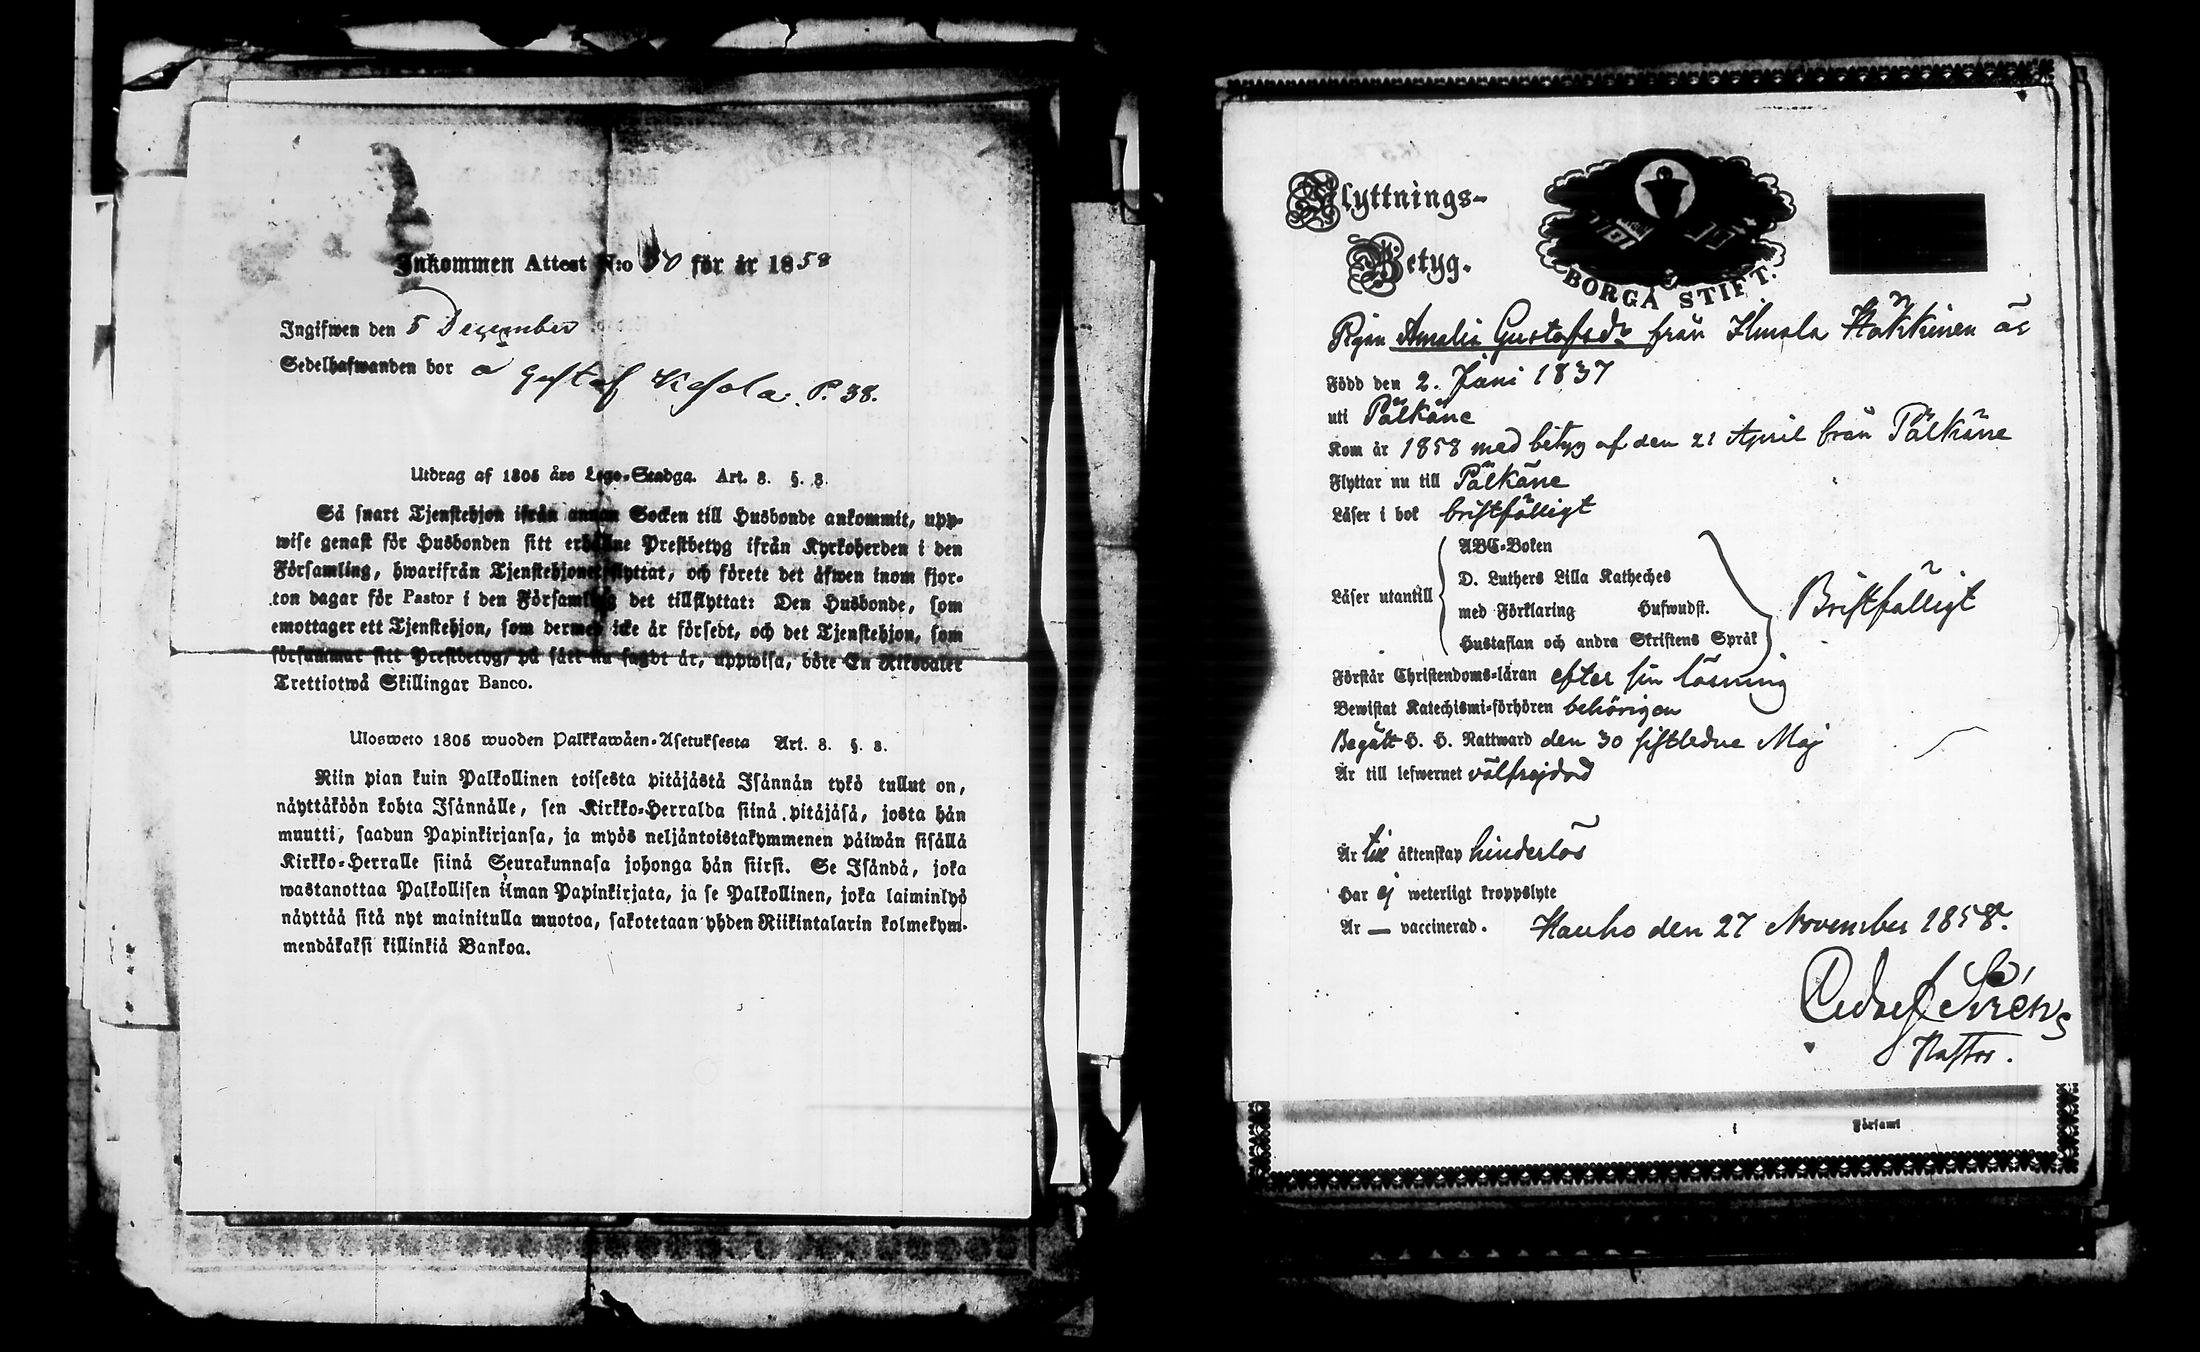 Inkommen Attest N:o 50 för år 1858
Ingifwen den 5 December
Sedelhafwanden bor å Gustaf Kesola. P. 38.
Utdrag af 1805 års Lego-Stadga. Art. 8. §. 8.
Så snart Tjenstehjon ifrån annan Socken till Husbonde ankommit, upp-
wise genast för Husbonden sitt erhållne Prestbetyg ifrån Kyrkoherden i den
Församling, hwarifrån Tjenstehjonet flyttat, och förete det äfwen inom fjor-
ton dagar för Pastor i den Församling det tillflyttat: Den Husbonde, som
emottager ett Tjenstehjon, som dermed icke är försedt, och det Tjenstehjon, som
försummar sitt Prestbetyg, på sätt nu sagdt är, uppwisa, böte En Riksdaler
Trettiotwå Skillingar Banco.
Ulosweto 1805 wuoden Palkkawäen-Asetuksesta Art. 8. §. 8.
Niin pian kuin Palkollinen toisesta pitäjästä Isännän tykö tullut on,
näyttäköön kohta Isännälle, sen Kirkko-Herralda siinä pitäjäsä, josta hän
muutti, saadun Papinkirjansa, ja myös neljäntoistakymmenen päiwän sisällä
Kirkko-Herralle siinä Seurakunnasa johonga hän siirsi. Se Isändä, joka
wastanottaa Palkollisen ilman Papinkirjata, ja se Palkollinen, joka laiminlyö
näyttää sitä nyt mainitulla muotoa, sakotetaan yhden Riikintalarin kolmekym-
mendäkaksi killinkiä Bankoa.
Flyttnings-
Betyg.
BORGÅ STIFT.
Pigan Amalia Gustafsdr från Ilmola Häkkinen är
Född den 2. Juni 1837
uti Pälkäne
Kom år 1858 med betyg af den 21 April från Pälkäne
Flyttar nu till Pälkäne
Läser i bok bristfälligt
Läser utantill
ABC-Boken
D. Luthers Lilla Katheches
med Förklaring Hufwudst.
Hustaflan och andra Skriftens Språk
Bristfälligt
Förstår Christendoms-läran efter sin läsning
Bewistat Katechismi-förhören behörigen
Begått H. H. Nattward den 30 sistledne Maj
Är till lefwernet välfrejdad
Är till äktenskap hinderlös
Har ej weterligt kroppslyte
Är — vaccinerad. Hauho den 27 November 1858.
Pastor.
i Församl